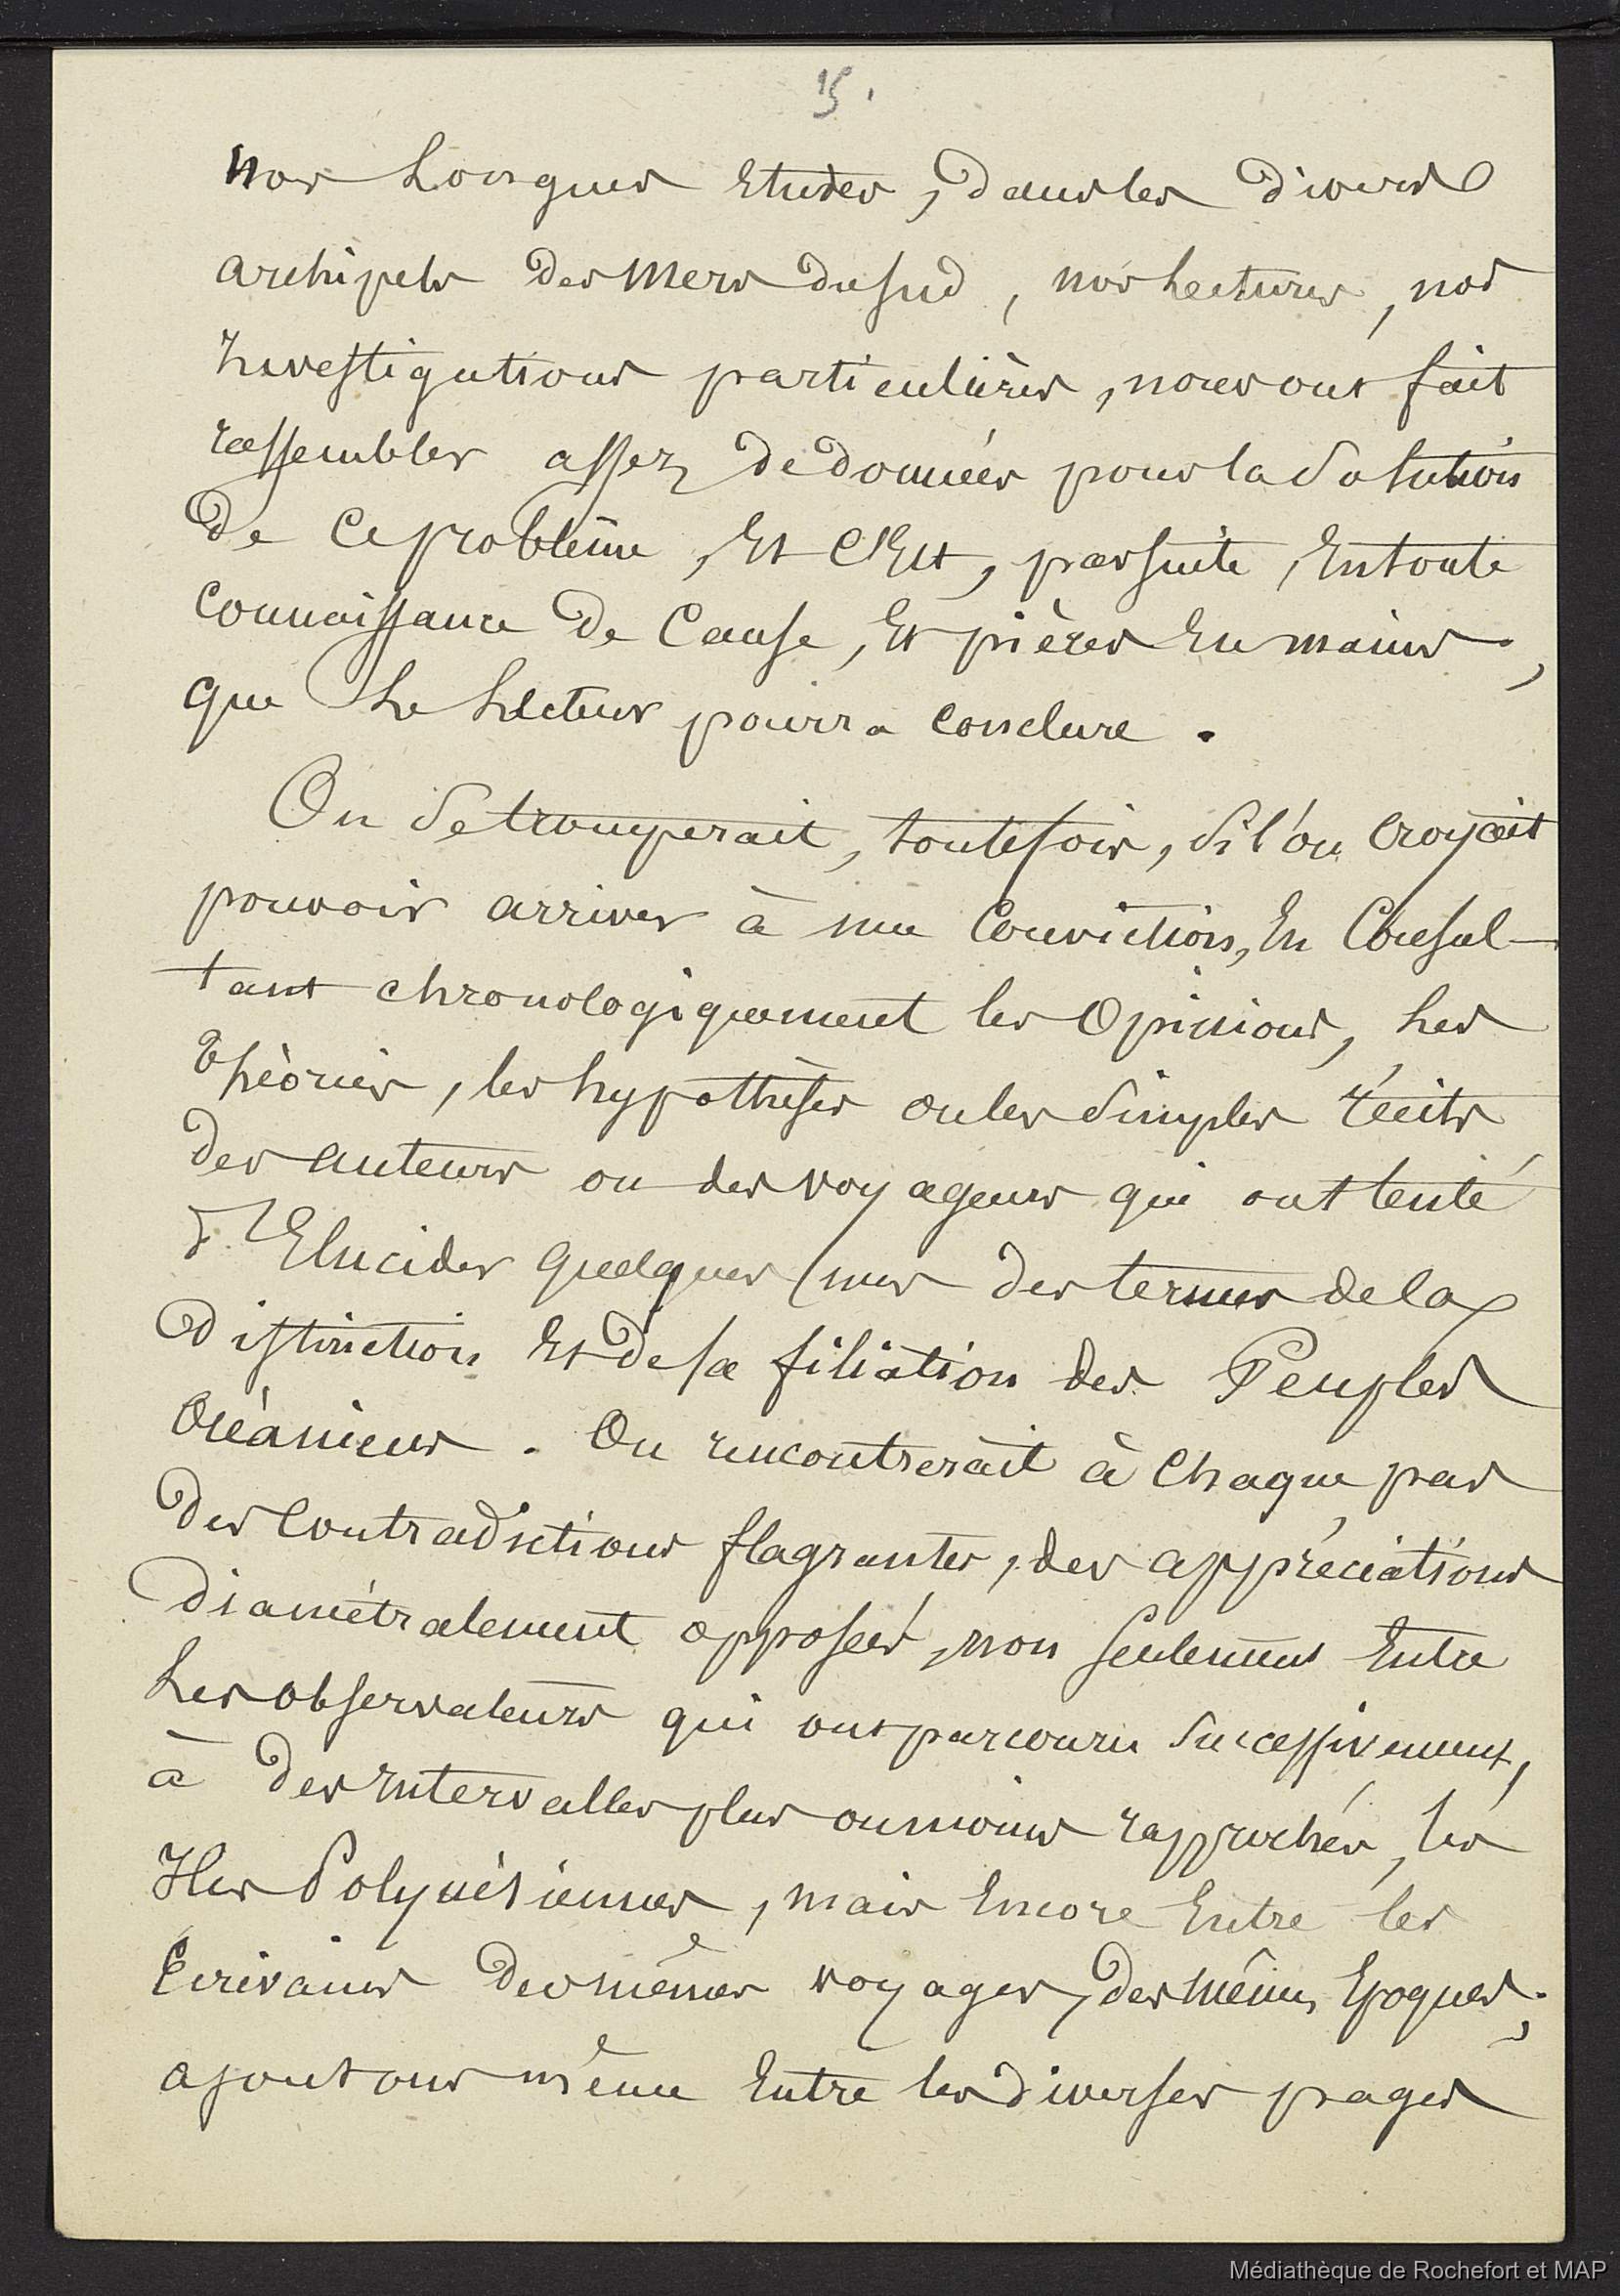 15.
Nos Longues Etudes, dans les divers
archipels des Mers du Sud, nos Lectures, nos
Investigations particulières, nous ont fait
rassembler assez de données pour la Solution
de ce problème, Et C'Est, par suite, En toute
connaissance de Cause, Et pièces En mains,
que Le Lecteur pourra conclure.
On Se tromperait, toutefois, Si l'on croyait
pouvoir arriver à une Conviction, En Consul-
tant chronologiquement les Opinions, Les
Théories, les hypothèses ou les Simples récits
des auteurs ou des voyageurs qui ont tenté
d'Elucider quelques unes des termes de la
distinction Et de la filiation des Peuples
Océaniens. On rencontrerait à Chaque pas
des Contradictions flagrantes, des appréciations
Diamétralement opposées, non Seulement Entre
Les observateurs qui ont parcouru Successivement,
à des Intervalles plus ou moins rapprochés, les
Iles Polynésiennes, mais Encore Entre les
Ecrivains des mêmes voyages, des mêmes Epoques;
ajoutons même Entre les diverses pages
Médiathèque de Rochefort et MAP